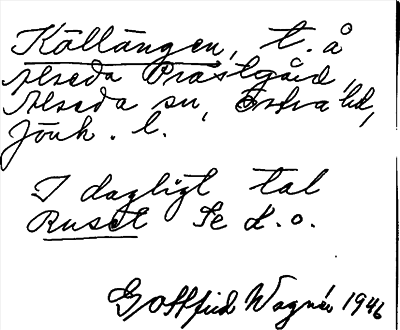 Källängen, t. å
Alseda Prästgård,
Alseda sn, Östra hd,
Jönk. l.
I dagligt tal
Ruset Se d. o.
Gottfrid Wagnér 1946